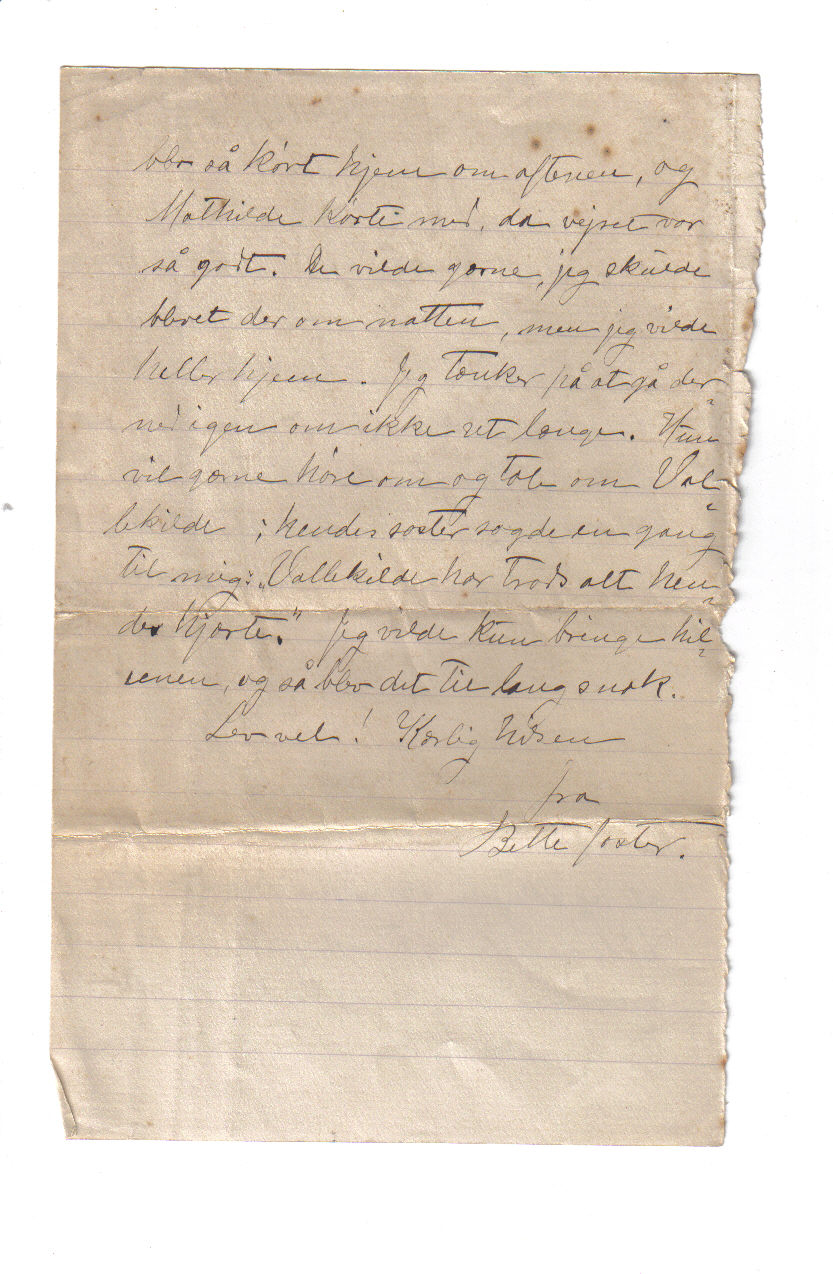 blev så kørt hjem om aftenen, og
Mathilde kørte med, da vejret var
så godt. De vilde gærne, jeg skulde
blevet der om natten, men jeg vilde
heller hjem. Jeg tænker på at gå der=
ned igen om ikke ret længe. Hun
vil gærne høre om og tale om Val=
lekilde; hendes søster sagde en gang
til mig: „Vallekilde har trods alt hen=
des hjærte." Jeg vilde kun bringe hil=
senen, og så blev det til lang snak.
Lev vel! Kærlig hilsen
fra
Bette søster.